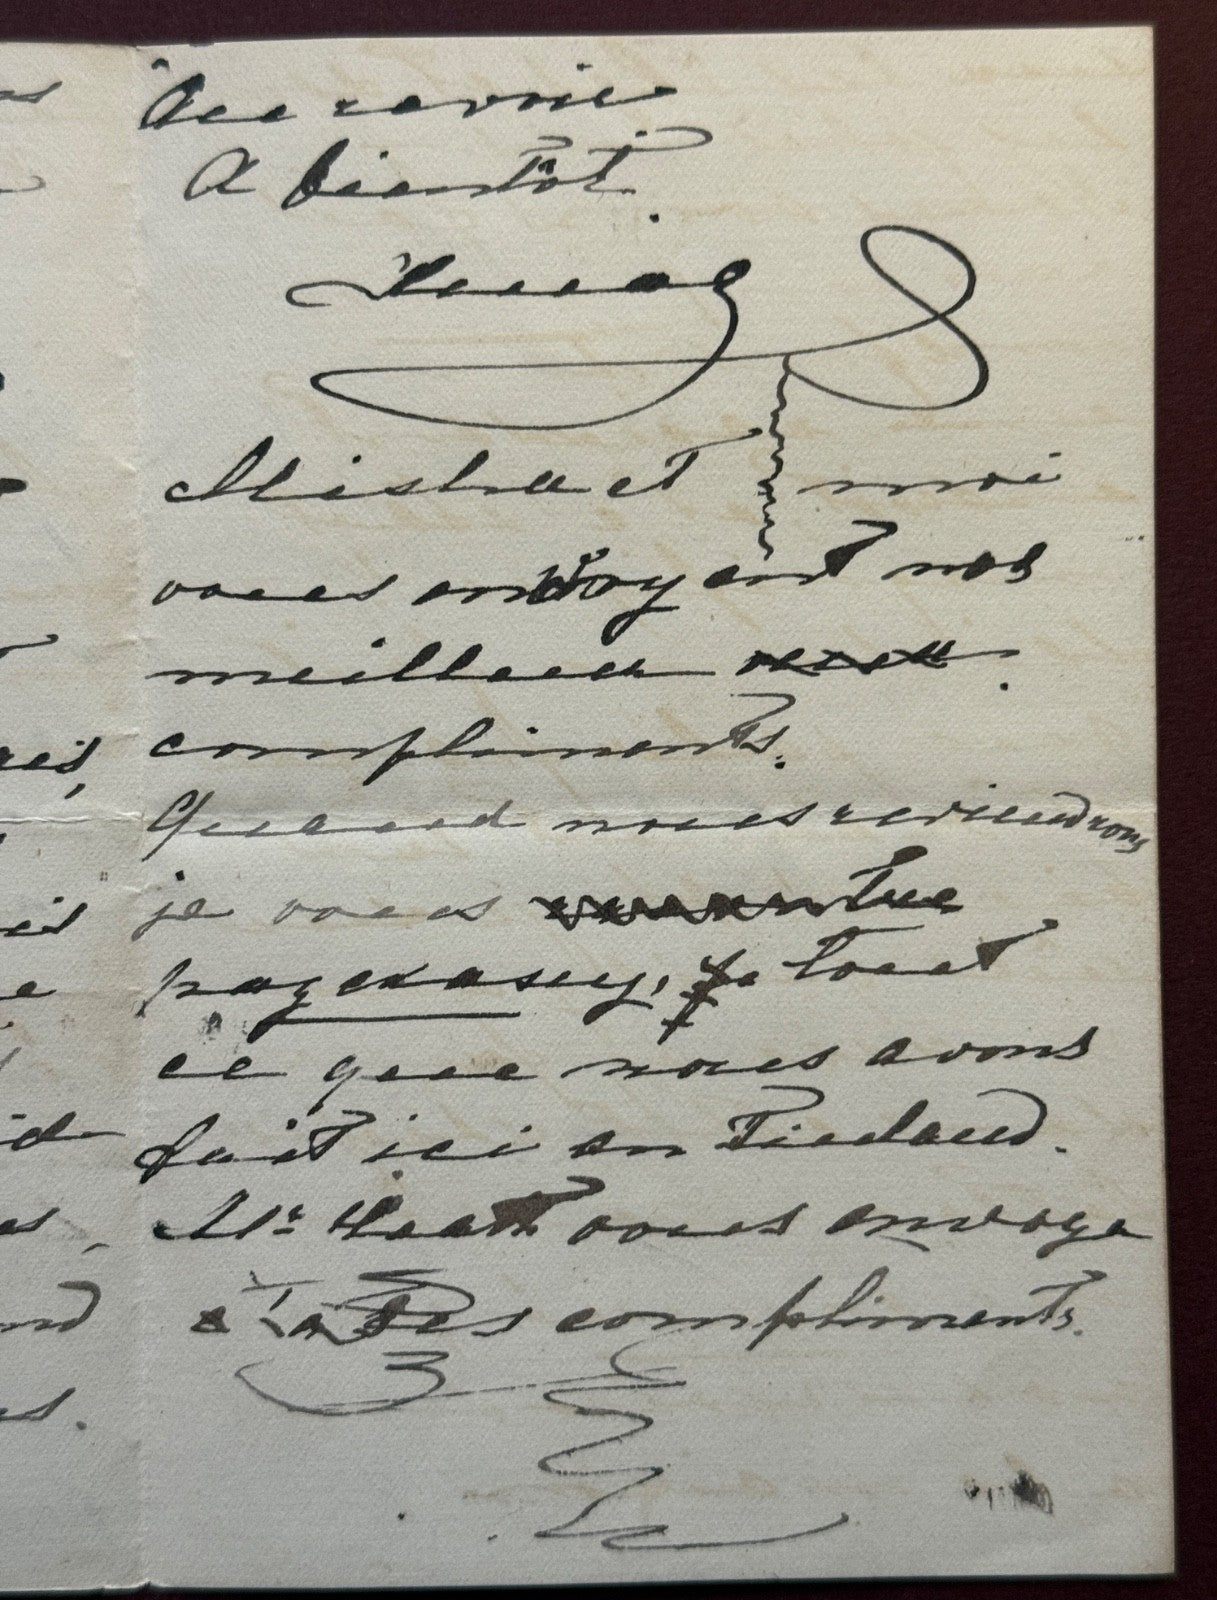 Au revoir
A bientôt.
Mishu et moi
vous envoyent nos
meilleur
compliments.
Quand nous reviendrons
je vous
tout
ce que nous avons
fait ici en Finland.
Mr Heath vous envoye
ses compliments.